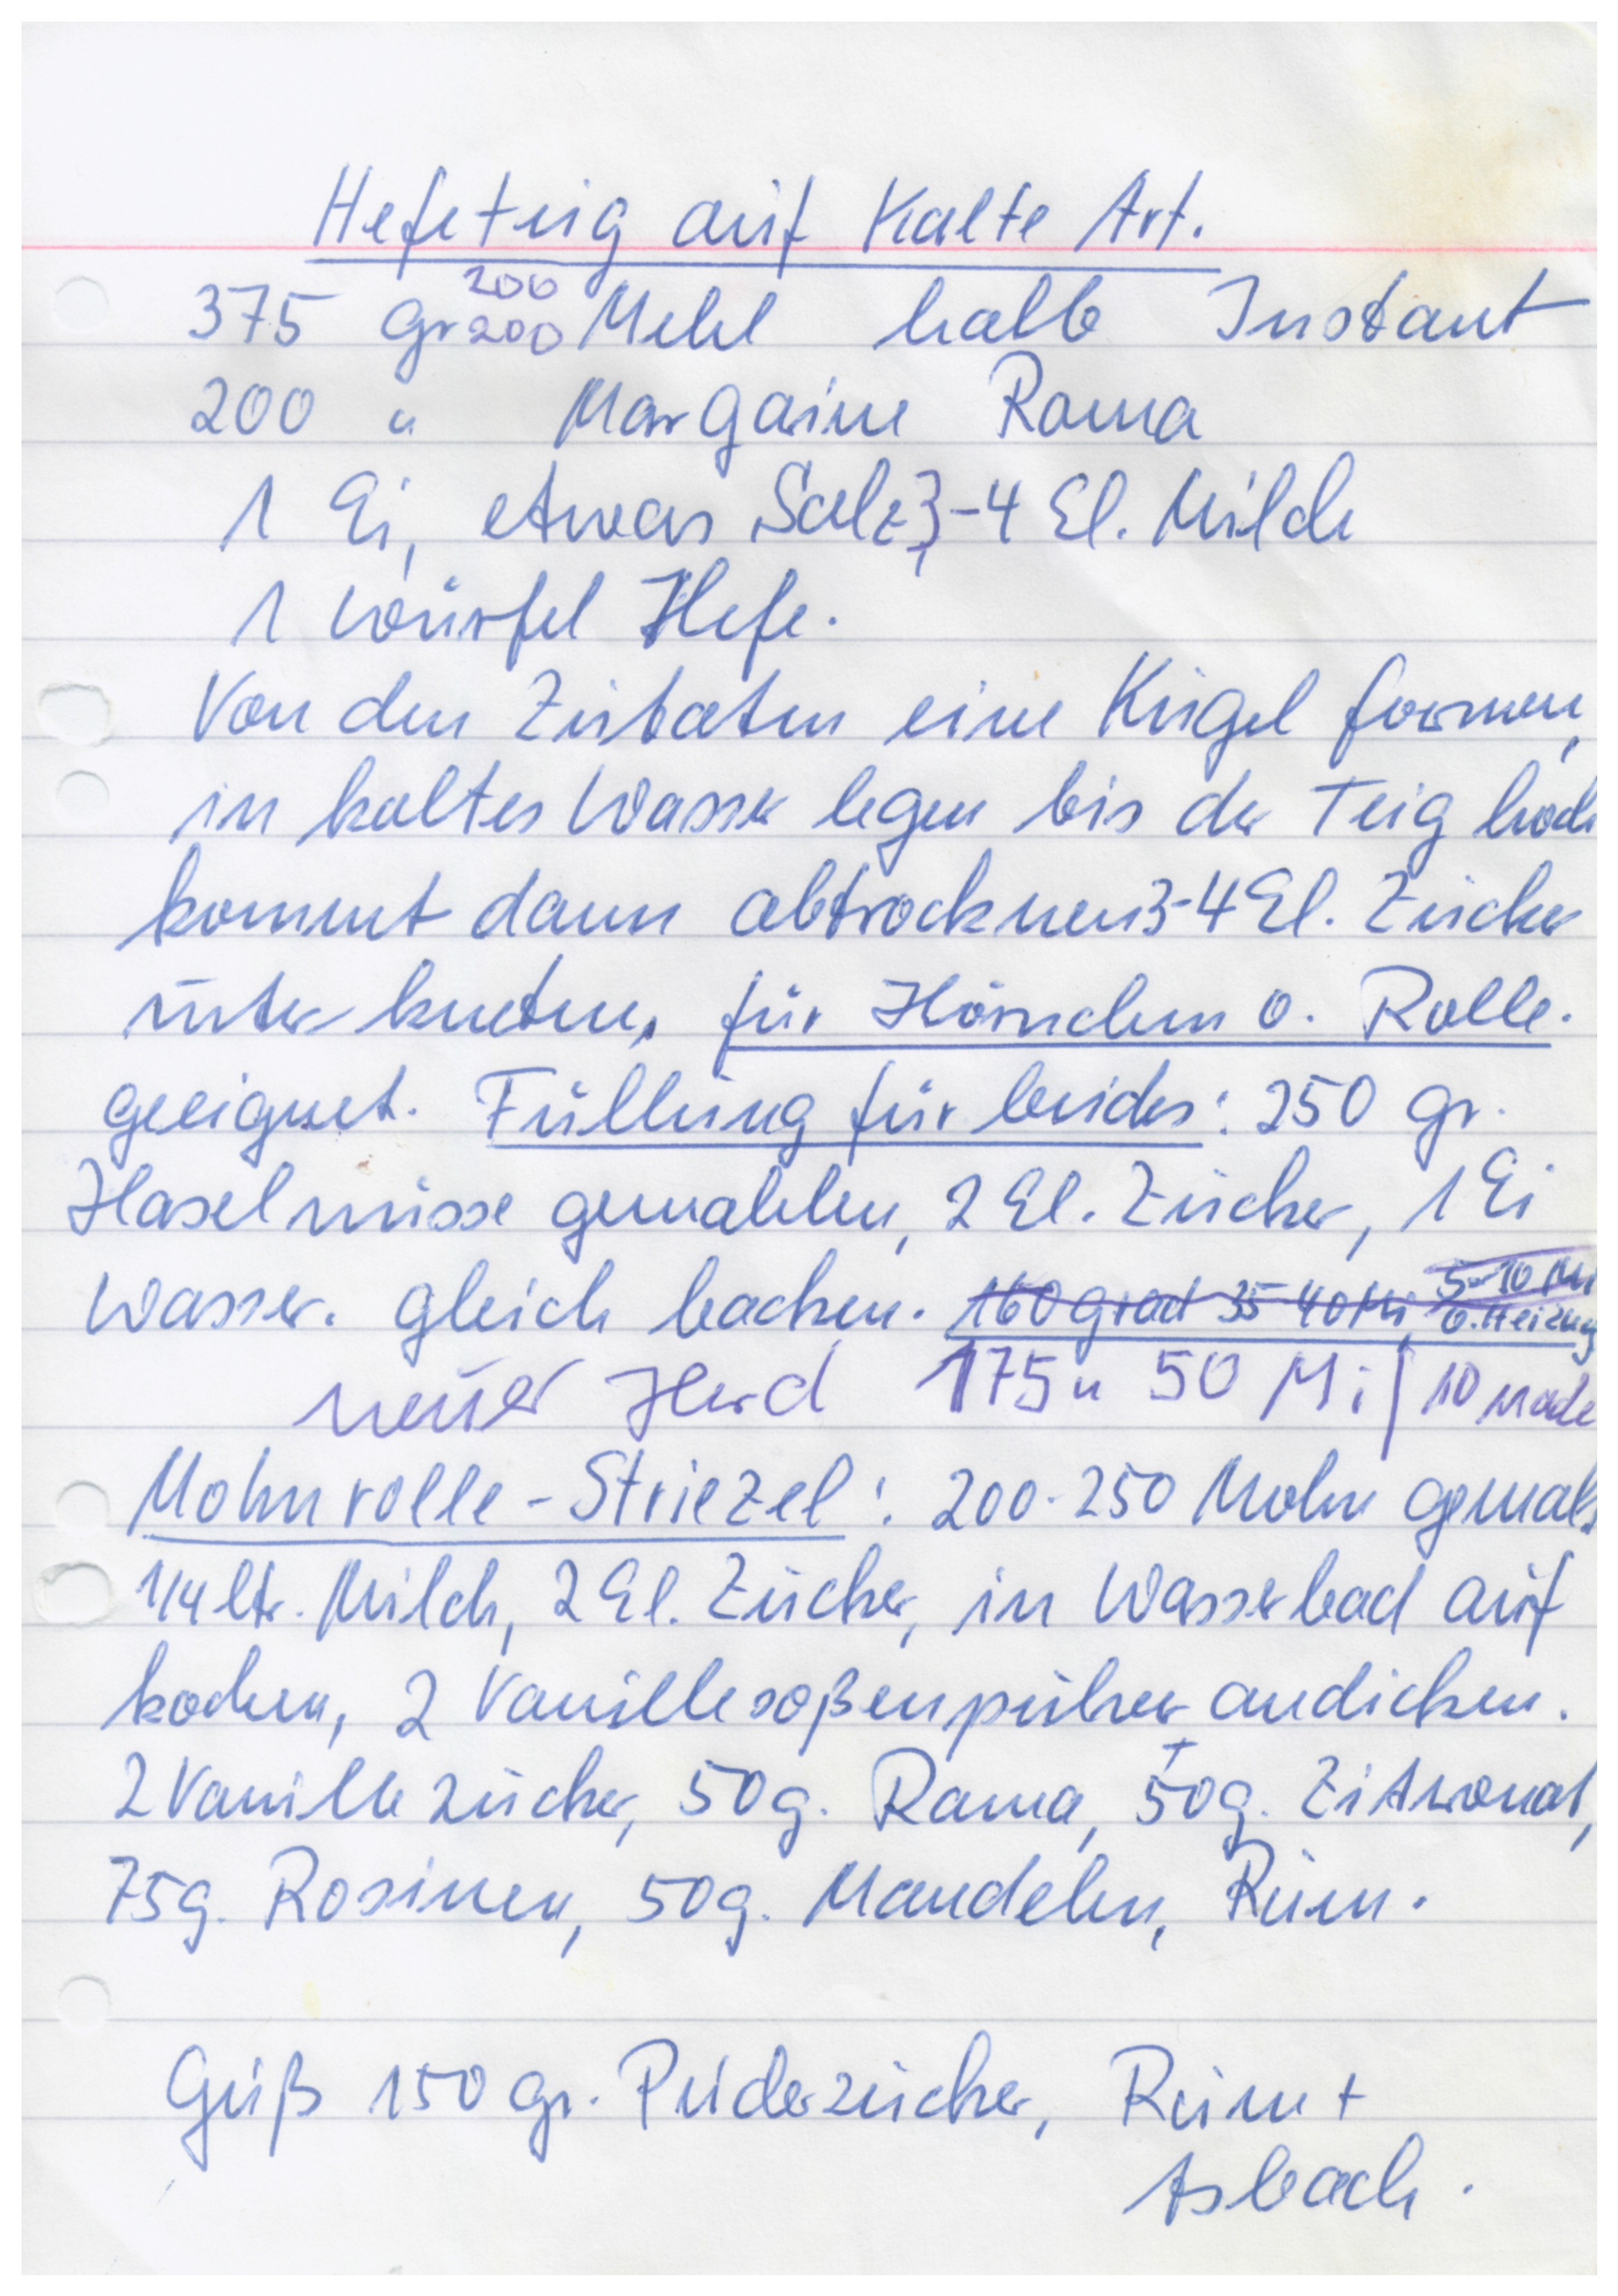 Hefeteig auf Kalte Art.
200
375 gr 200 Mehl halb Instant
200 " Margarine Rama
1 Ei, etwas Salz, 3-4 El. Milch
1 Würfel Hefe.
Von den Zutaten eine Kugel formen,
in kaltes Wasser legen bis der Teig hoch
kommt dann abtrocknen 3-4 El. Zucker
unter kneten, für Hörnchen o. Rolle.
geeignet. Füllung für beides: 250 gr.
Haselnüsse gemahlen, 2 El. Zucker, 1 Ei
5-10 Mi
Wasser. gleich backen. 160 Grad 35-40 Mi, o. Heizung
neuer Herd 175 u 50 Mi / 10 nach
Mohnrolle-Striezel: 200-250 Mohn gemahl.
1/4 ltr. Milch, 2 El. Zucker, in Wasserbad auf
kochen, 2 Vanillesoßenpulver andicken.
2 Vanillezucker, 50g. Rama, 50g. Zitronat,
75g. Rosinen, 50g. Mandeln, Rum.
Guß 150 gr. Puderzucker, Rum +
Asbach.